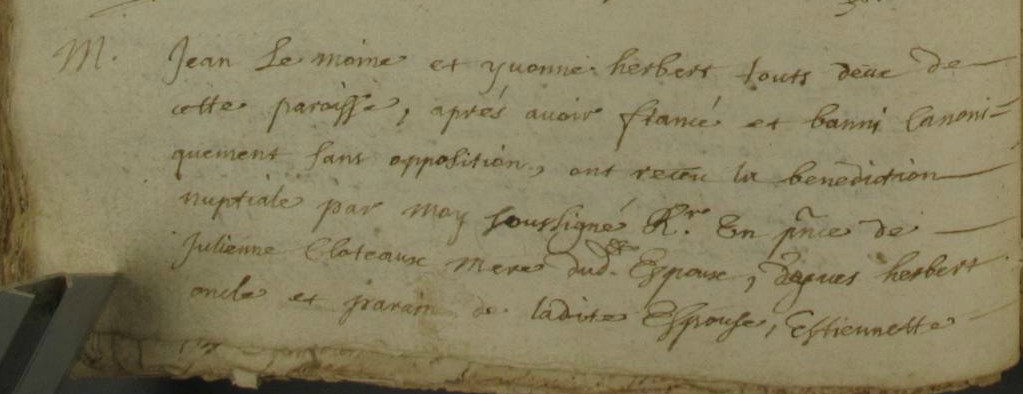 M. Jean Le moine et yvonne herbert touts deue de
cette paroisse, aprés avoir fiancé et banni Canoni-
quement sans opposition, ont receu la benediction
nuptiale par moy soussigné Rr. En pnce de
Julienne Cloteaux mere dud. Espoux, Jacques herbert
oncle et parain de ladite Espouse, Estiennette